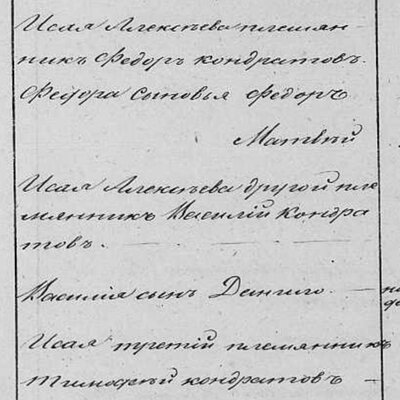 Исая Алексѣева племян-
никъ Федоръ кондратовъ.
Федора сыновья Федоръ
Матвѣй
Исая Алексѣева другой пле
мянникъ Василій Кондра
товъ.
Василія сынъ Данило
Исая третій племянникъ
Тимофѣй кондратовъ